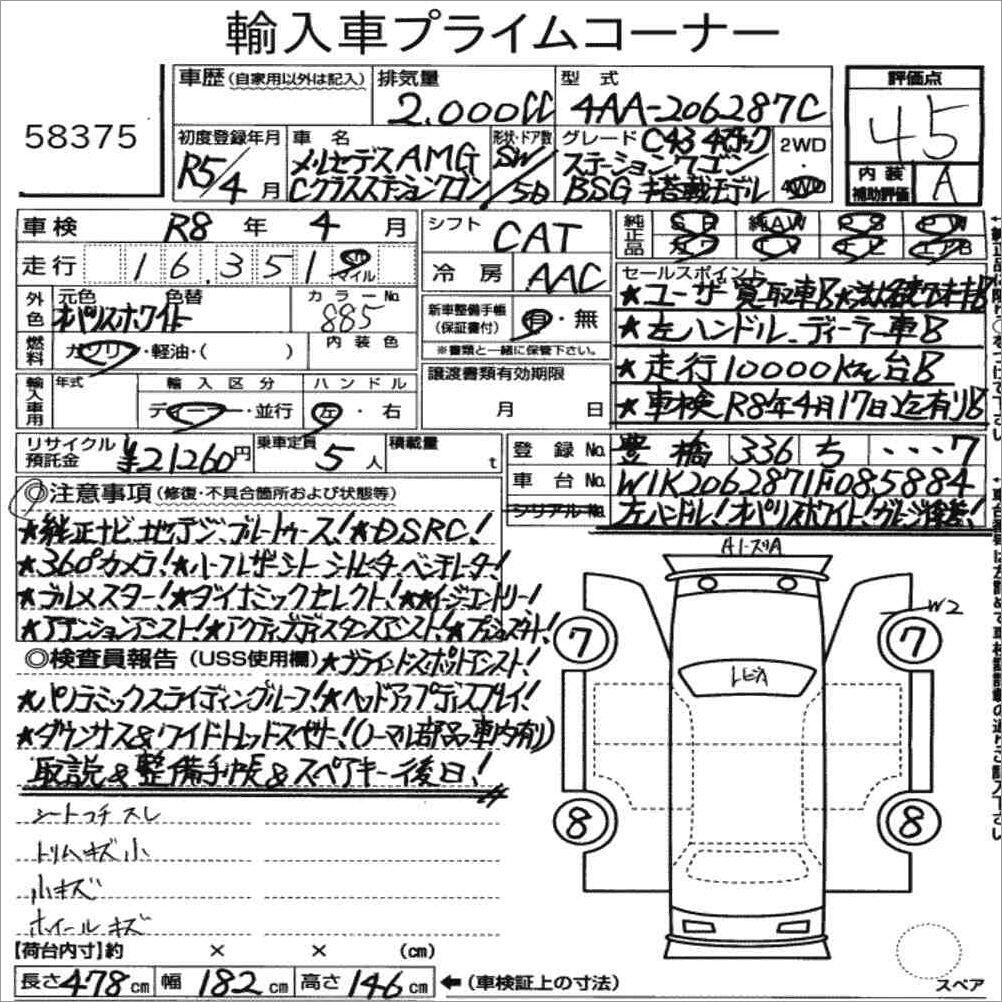 輸入車プライムコーナー
58375
車歴(自家用以外は記入)
排気量
2.000cc
型式
4AA-206287C
評価点
45
内装
補助評価
A
初度登録年月
R5/4月
車名
メルセデスAMG
Cクラスステーションワゴン
形状・ドア数
SW/5D
グレード C43 4マチック
ステーションワゴン
BSG 搭載モデル
2WD・
4WD
車検 R8年 4月
走行 16.351 マイル
外色
元色 色替
オパリスホワイト
カラーNo.
885
燃料
ガソリン・軽油・( )
内装色
シフト CAT
冷房 AAC
新車整備手帳
(保証書付)
有・無
※書類と一緒に保管下さい。
純正品
純AW
セールスポイント
★ユーザー買取車
★左ハンドル、ディーラー車
★走行10000km台
★車検R8年4月17日迄有り
輸入車用
年式
輸入区分
ディーラー・並行
ハンドル
左・右
譲渡書類有効期限
月 日
リサイクル
預託金
¥21260円
乗車定員
5人
積載量
t
登録No. 豊橋 336 ち ・・・7
車台No. W1K2062871F085884
シリアルNo.
左ハンドル!オパリスホワイト!ガレージ保管!
◎注意事項(修復・不具合箇所および状態等)
★純正ナビ、地デジ、ブルートゥース!★DSRC!
★360°カメラ!★ハーフレザーシート シートヒーター ベンチレーター!
★ブルメスター!★ダイナミックセレクト!★★イージーエントリー!
★アテンションアシスト!★アクティブディスタンスアシスト!★プッシュスタート!
◎検査員報告(USS使用欄)★ブラインドスポットアシスト!
★パノラミックスライディングルーフ!★ヘッドアップディスプレイ!
★ダウンサス&ワイドトレッドスペーサー!(ノーマル部品車内有り)
取説&整備手帳&スペアキー後日!
シートフチスレ
トリムキズ小
小キズ
ホイールキズ
A1・スリA
W2
7
7
トビA
8
8
スペア
【荷台内寸】約 × × (cm)
長さ478cm 幅182cm 高さ146cm ←(車検証上の寸法)